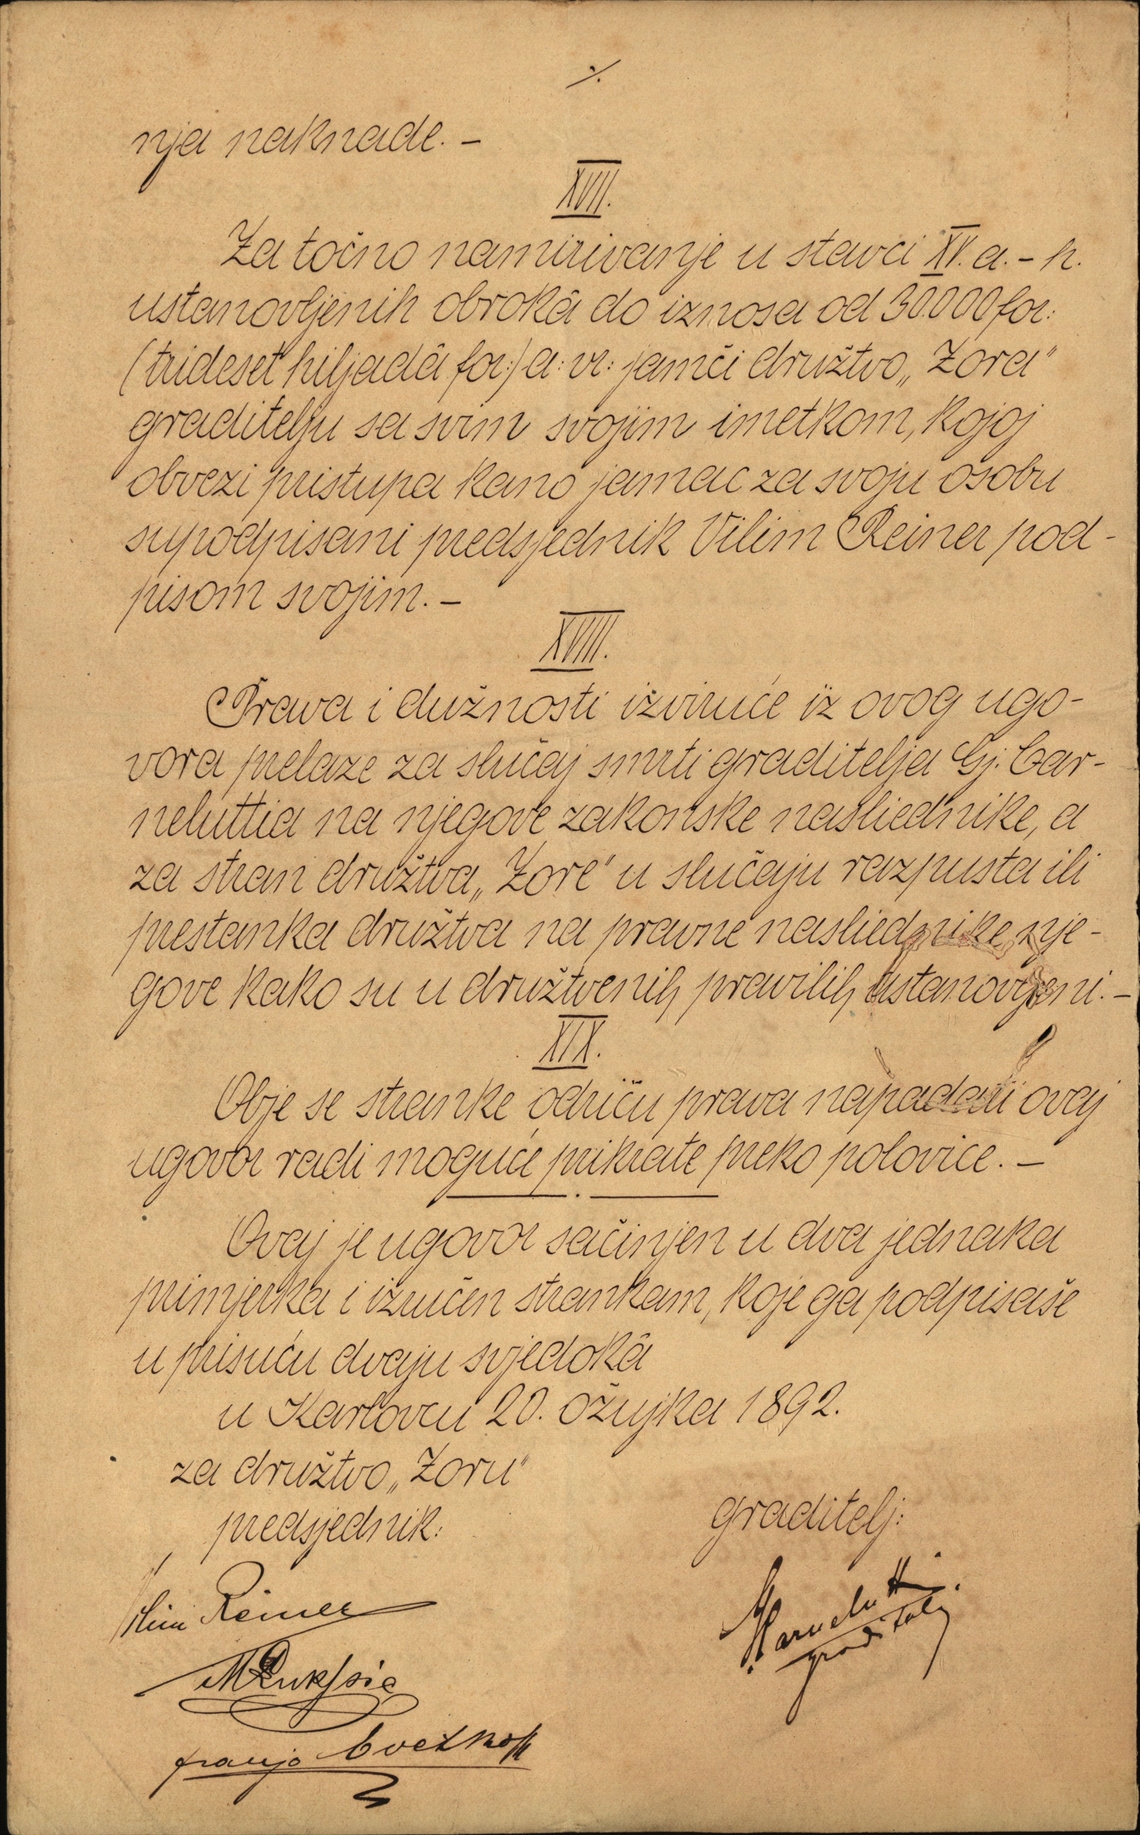 ·/.
nja naknade. –
XVII.
Za točno namirivanje u stavci XV. a. – h.
ustanovljenih obrokâ do iznosa od 30000 for:
(trideset hiljadâ for:) a: vr: jamči družtvo „Zora"
graditelju sa svim svojim imetkom, kojoj
obvezi pristupa kano jamac za svoju osobu
supodpisani predsjednik Vilim Reiner pod-
pisom svojim. –
XVIII.
Prava i dužnosti izviruće iz ovog ugo-
vora prelaze za slučaj smrti graditelja Gj. Car-
neluttia na njegove zakonske nasliednike, a
za stran družtva „Zore" u slučaju razpusta ili
prestanka družtva na pravne nasliednike nje-
gove kako su u družtvenih pravilih ustanovljeni. –
XIX.
Obje se stranke odriču prava napadati ovaj
ugovor radi moguće prikrate preko polovice. –
Ovaj je ugovor sačinjen u dva jednaka
primjerka i izručen strankam, koje ga podpisaše
u prisuću dvaju svjedokâ
u Karlovcu 20. ožujka 1892.
za družtvo „Zoru"
predsjednik:
graditelj:
Vilim Reiner
Karnelutti
graditelj
franjo